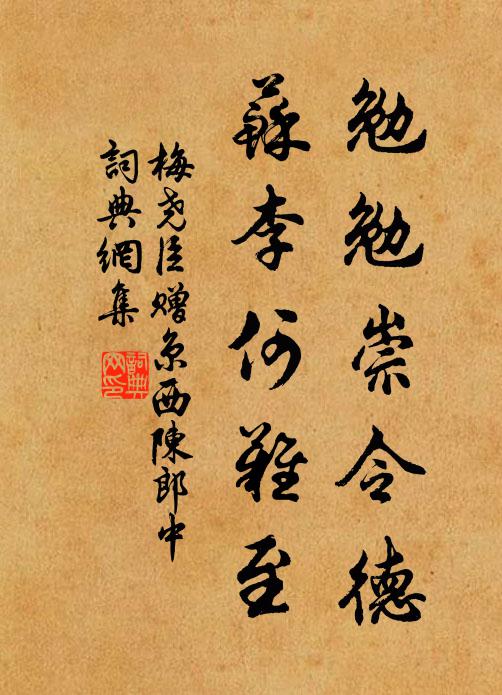 勉勉崇令德
蘇李何難至
梅尧臣赠京西陳郎中
詞典網集
詞典
网印